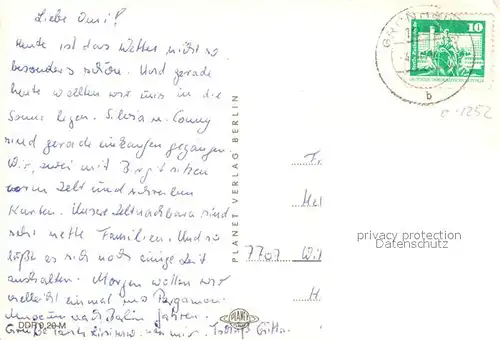 Liebe Omi!
Heute ist das Wetter nicht so
besonders schön. Und gerade
heute wollten wir uns in die
Sonne legen. Silvia u. Conny
sind gerade einkaufen gegangen.
Wir zwei mit Birgit sitzen
vorm Zelt und schreiben
Karten. Unsere Zeltnachbarn sind
sehr nette Familien. Und so
läßt es sich noch einige Zeit
aushalten. Morgen wollen wir
vielleicht einmal ins Pergamon-
Museum nach Berlin fahren.
Grüße
DDR 0,20 M
PLANET VERLAG BERLIN
PLANET
10
b
0-1252
Fr
Hel
7707 Wit
H
privacy protection
Datenschutz